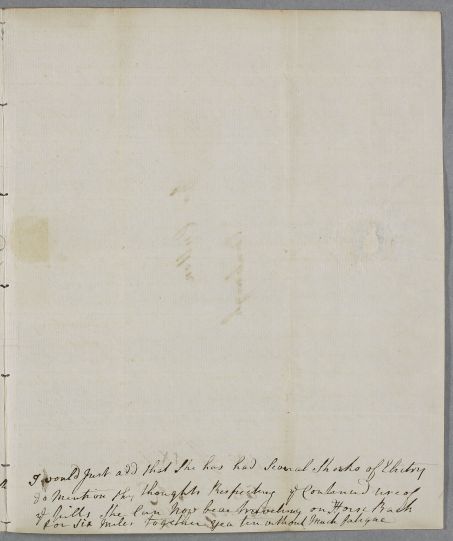 I would Just add that She has had Several Shocks of Electry
do Mention thy thoughts Respecting ye Contanied use of
ye Pills She Can Now bear traveling on Horse Back
For Six Miles together yea ten without Much fatigue